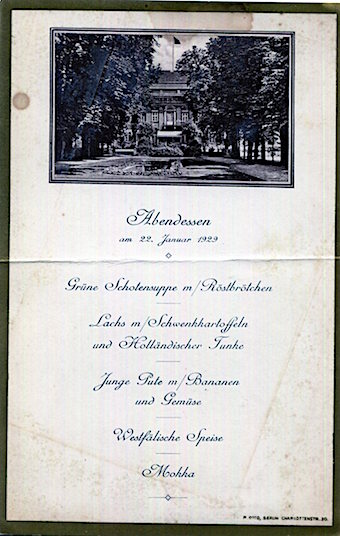 Abendessen
am 22. Januar 1929
Grüne Schotensuppe m/Röstbrötchen
Lachs m/Schwenkkartoffeln
und Holländischer Tunke
Junge Pute m/Bananen
und Gemüse
Westfälische Speise
Mokka
M. OTTO, BERLIN CHARLOTTENSTR. 30.